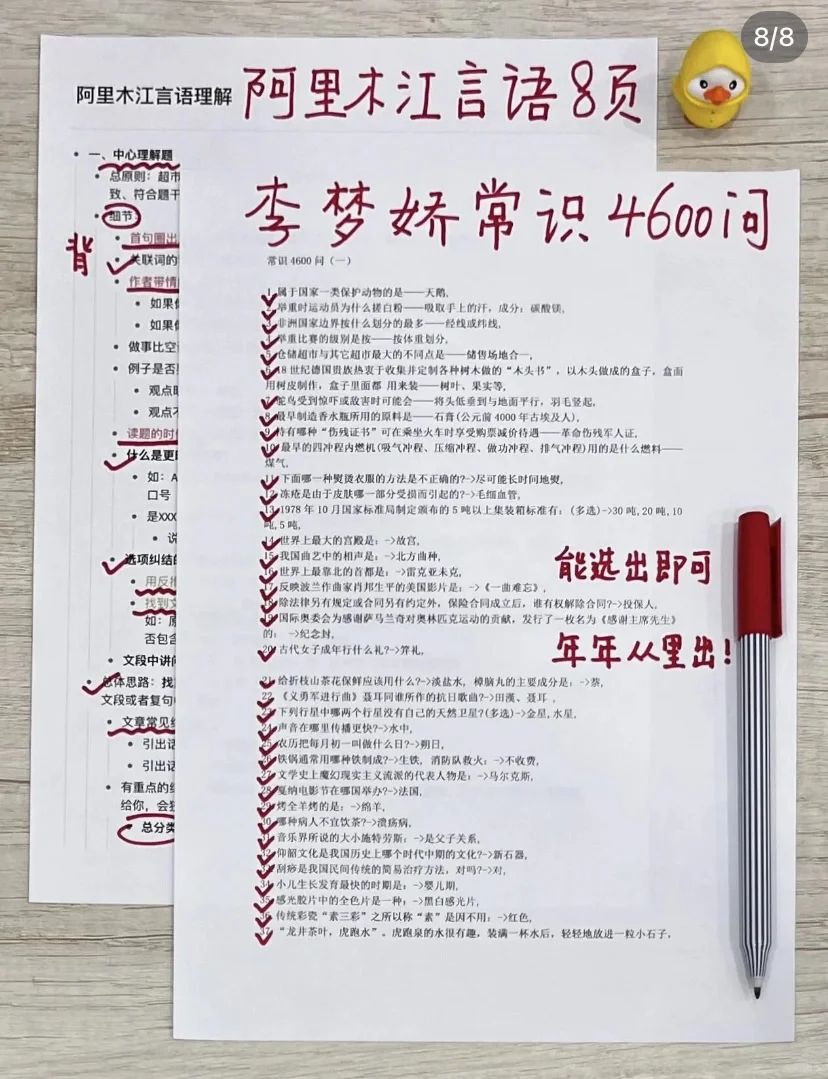 8/8
阿里木江言语理解 阿里木江言语8页
一、中心理解题
总原则：超市
致、符合题干
细节：
首句圈出
背
关联词的
作者带情
如果你
如果你
做事比空
例子是否
观点明
观点不
读题的时
什么是更
如：A
口号
是XXX
说
选项纠结的
用反推
找到文
如：原
否包含
文段中讲问
总体思路：找
文段或者复句
文章常见结
引出话
引出话
有重点的结
给你，会
总分类
李梦娇常识4600问
常识4600问（一）
1,属于国家一类保护动物的是——天鹅,
2,举重时运动员为什么搓白粉——吸取手上的汗，成分：碳酸镁,
3,非洲国家边界按什么划分的最多——经线或纬线,
4,举重比赛的级别是按——按体重划分,
5,仓储超市与其它超市最大的不同点是——储售场地合一,
6,18世纪德国贵族热衷于收集并定制各种树木做的“木头书”，以木头做成的盒子，盒面
用树皮制作，盒子里面都 用来装——树叶、果实等,
7,鸵鸟受到惊吓或敌害时可能会——将头低垂到与地面平行，羽毛竖起,
8,最早制造香水瓶所用的原料是——石膏(公元前4000年古埃及人),
9,持有哪种“伤残证书”可在乘坐火车时享受购票减价待遇——革命伤残军人证,
10,最早的四冲程内燃机(吸气冲程、压缩冲程、做功冲程、排气冲程)用的是什么燃料——
煤气,
11,下面哪一种熨烫衣服的方法是不正确的?->尽可能长时间地熨,
12,冻疮是由于皮肤哪一部分受损而引起的?->毛细血管,
13,1978年10月国家标准局制定颁布的5吨以上集装箱标准有：(多选)->30吨,20吨,10
吨,5吨,
14,世界上最大的宫殿是：->故宫,
15,我国曲艺中的相声是：->北方曲种,
16,世界上最靠北的首都是：->雷克亚未克,
能选出即可
17,反映波兰作曲家肖邦生平的美国影片是：->《一曲难忘》,
18,除法律另有规定或合同另有约定外，保险合同成立后，谁有权解除合同?->投保人,
19,国际奥委会为感谢萨马兰奇对奥林匹克运动的贡献，发行了一枚名为《感谢主席先生》
的： ->纪念封,
20,古代女子成年行什么礼?->笄礼,
年年从里出！
21,给折枝山茶花保鲜应该用什么?->淡盐水，樟脑丸的主要成分是：->萘,
22,《义勇军进行曲》聂耳同谁所作的抗日歌曲?->田漢、聂耳 ,
23,下列行星中哪两个行星没有自己的天然卫星?(多选)->金星,水星,
24,声音在哪里传播更快?->水中,
25,农历把每月初一叫做什么日?->朔日,
26,铁锅通常用哪种铁制成?->生铁，消防队救火：->不收费,
27,文学史上魔幻现实主义流派的代表人物是：->马尔克斯,
28,戛纳电影节在哪国举办?->法国,
29,烤全羊烤的是：->绵羊,
30,哪种病人不宜饮茶?->溃疡病,
31,音乐界所说的大小施特劳斯：->是父子关系,
32,仰韶文化是我国历史上哪个时代中期的文化?->新石器,
33,刮痧是我国民间传统的简易治疗方法，对吗?->对,
34,小儿生长发育最快的时期是：->婴儿期,
35,感光胶片中的全色片是一种：->黑白感光片,
36,传统彩瓷“素三彩”之所以称“素”是因不用：->红色,
37,“龙井茶叶，虎跑水”。虎跑泉的水很有趣，装满一杯水后，轻轻地放进一粒小石子,